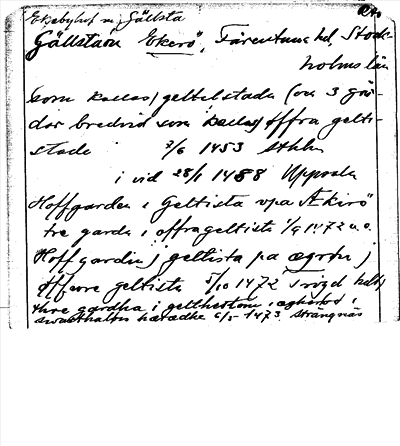 Ekebyhof m, Gällsta
Gällstaön Ekerö, Färentuna hd, Stock-
holms län
som kallas) geltilstada (on 3 går-
dar bredvid som kallas) öffra gelti-
stade 7/6 1453 Sthlm
i vid 28/1 1488 Uppsala
Hoffgarden i Geltista upa Ækirö
tre garda i offrageltista 1472
Hoffgardin j geltista pa ægrðn j
öffuore geltista 5/10 1472
thre gardha i gelthestom
swartháltis häradhe 6/5 1473 Strängnäs